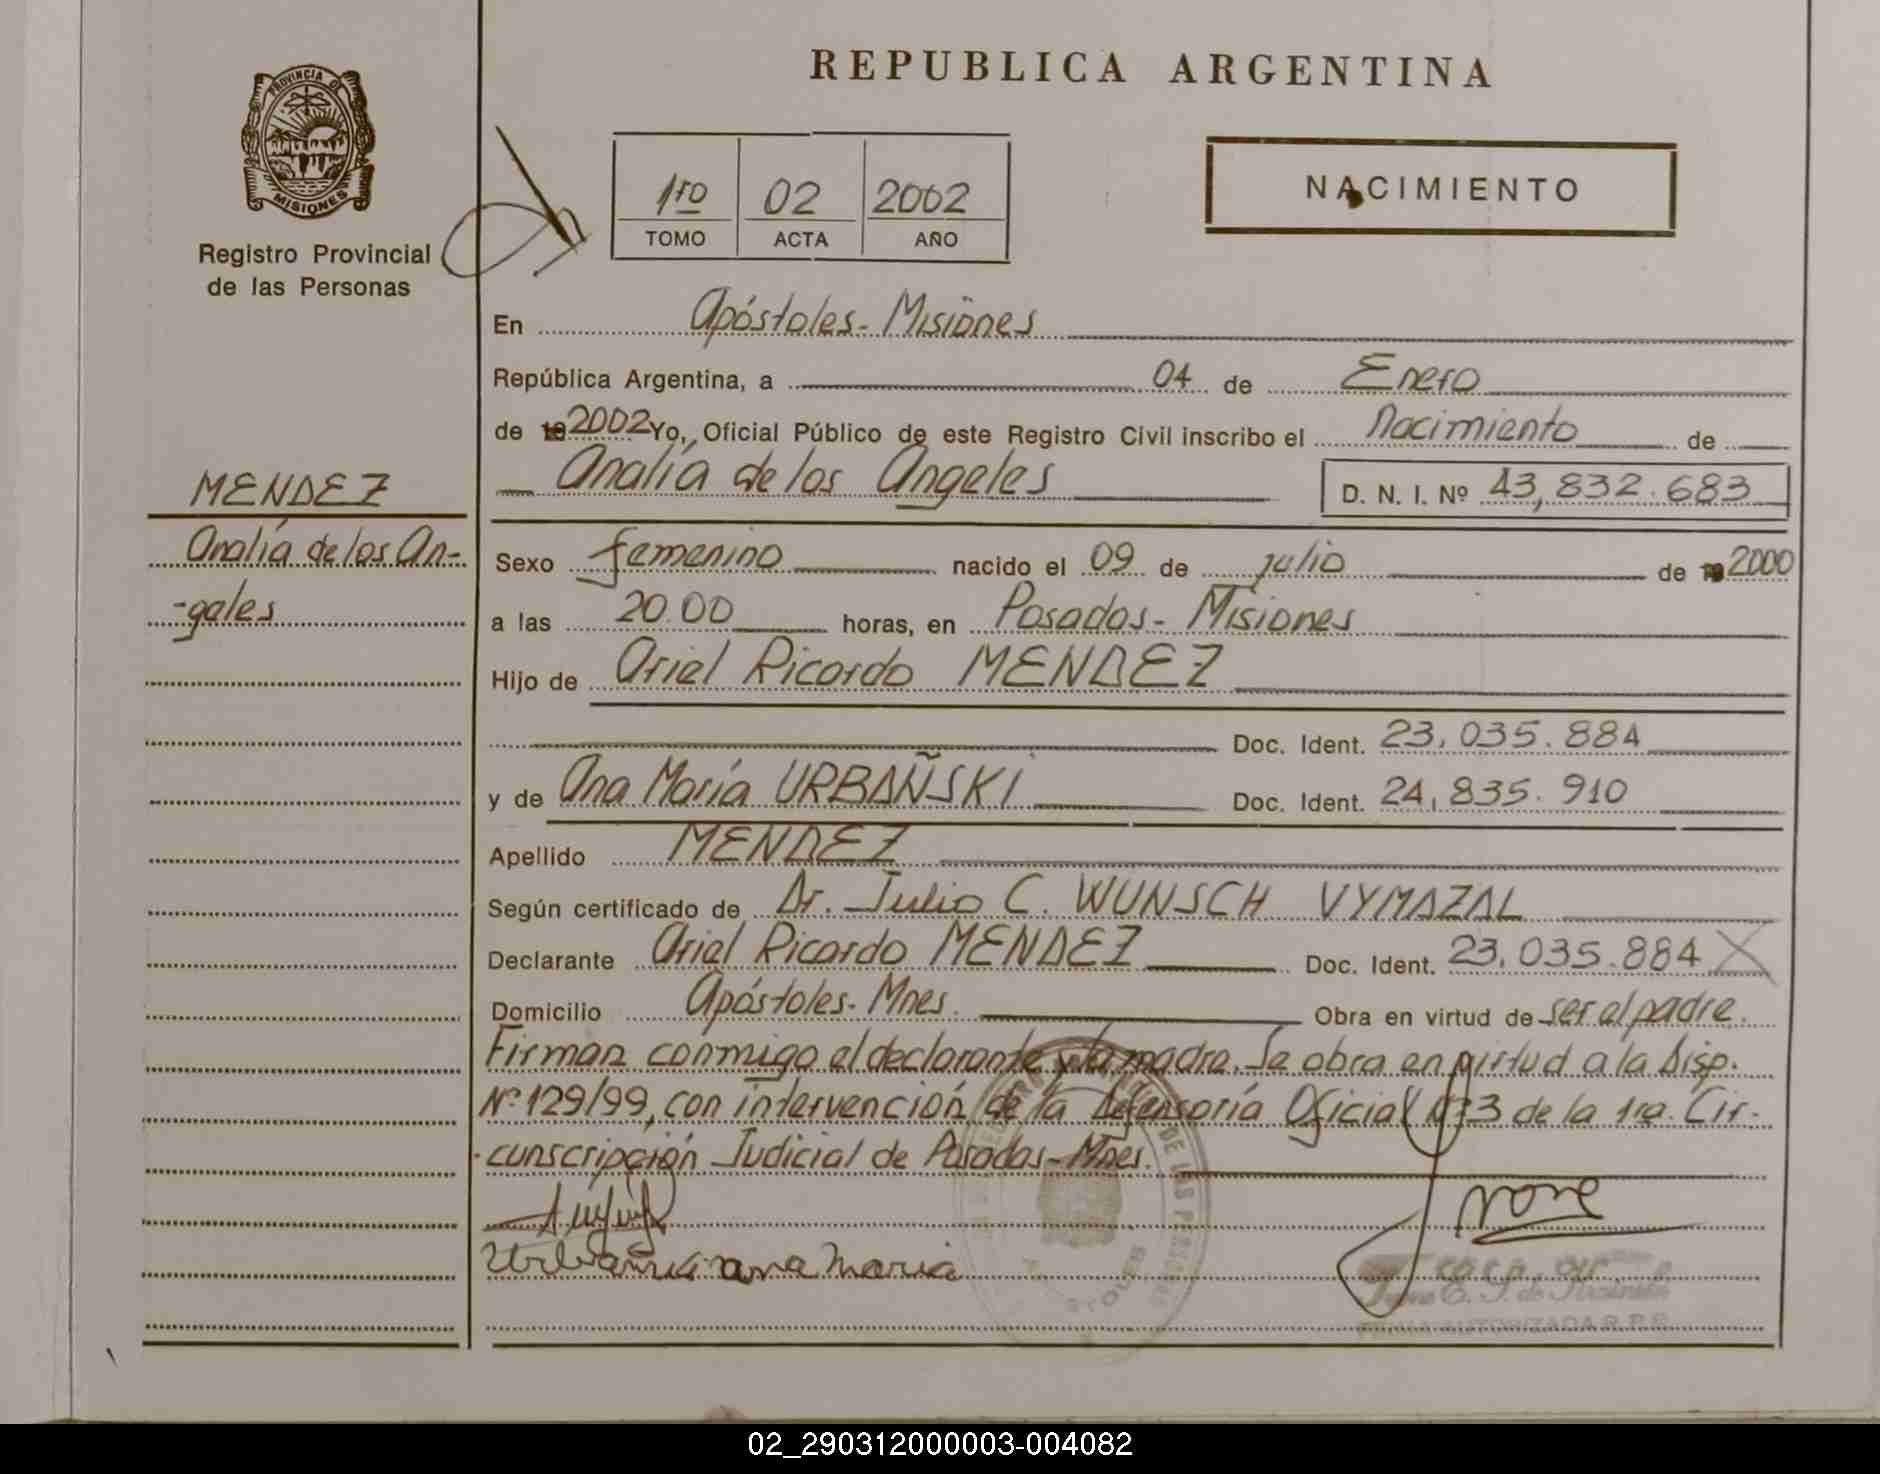 PROVINCIA DE
MISIONES
Registro Provincial
de las Personas
MENDEZ
Analía de los An-
-gales
REPUBLICA ARGENTINA
1ro 02 2002
TOMO ACTA AÑO
NACIMIENTO
En Apóstoles - Misiones
República Argentina, a 04 de Enero
de 2002 Yo, Oficial Público de este Registro Civil inscribo el Nacimiento de
Analía de los Angeles D. N. I. Nº 43,832.683
Sexo femenino nacido el 09 de julio de 2000
a las 20.00 horas, en Posadas - Misiones
Hijo de Ariel Ricardo MENDEZ
Doc. Ident. 23.035.884
y de Ana María URBAÑSKI Doc. Ident. 24.835.910
Apellido MENDEZ
Según certificado de Dr. Julio C. WUNSCH VYMAZAL
Declarante Ariel Ricardo MENDEZ Doc. Ident. 23.035.884
Domicilio Apóstoles - Mnes. Obra en virtud de ser el padre.
Firman conmigo el declarante y la madre. Se obra en virtud a la Disp.
Nº 129/99, con intervención de la Defensoría Oficial Nº 3 de la 1ra. Cir-
-cunscripción Judicial de Posadas - Mnes.
Urbañski ana maria
DE LAS PERSONAS
FIRMA AUTORIZADA R.P.P.
02_290312000003-004082